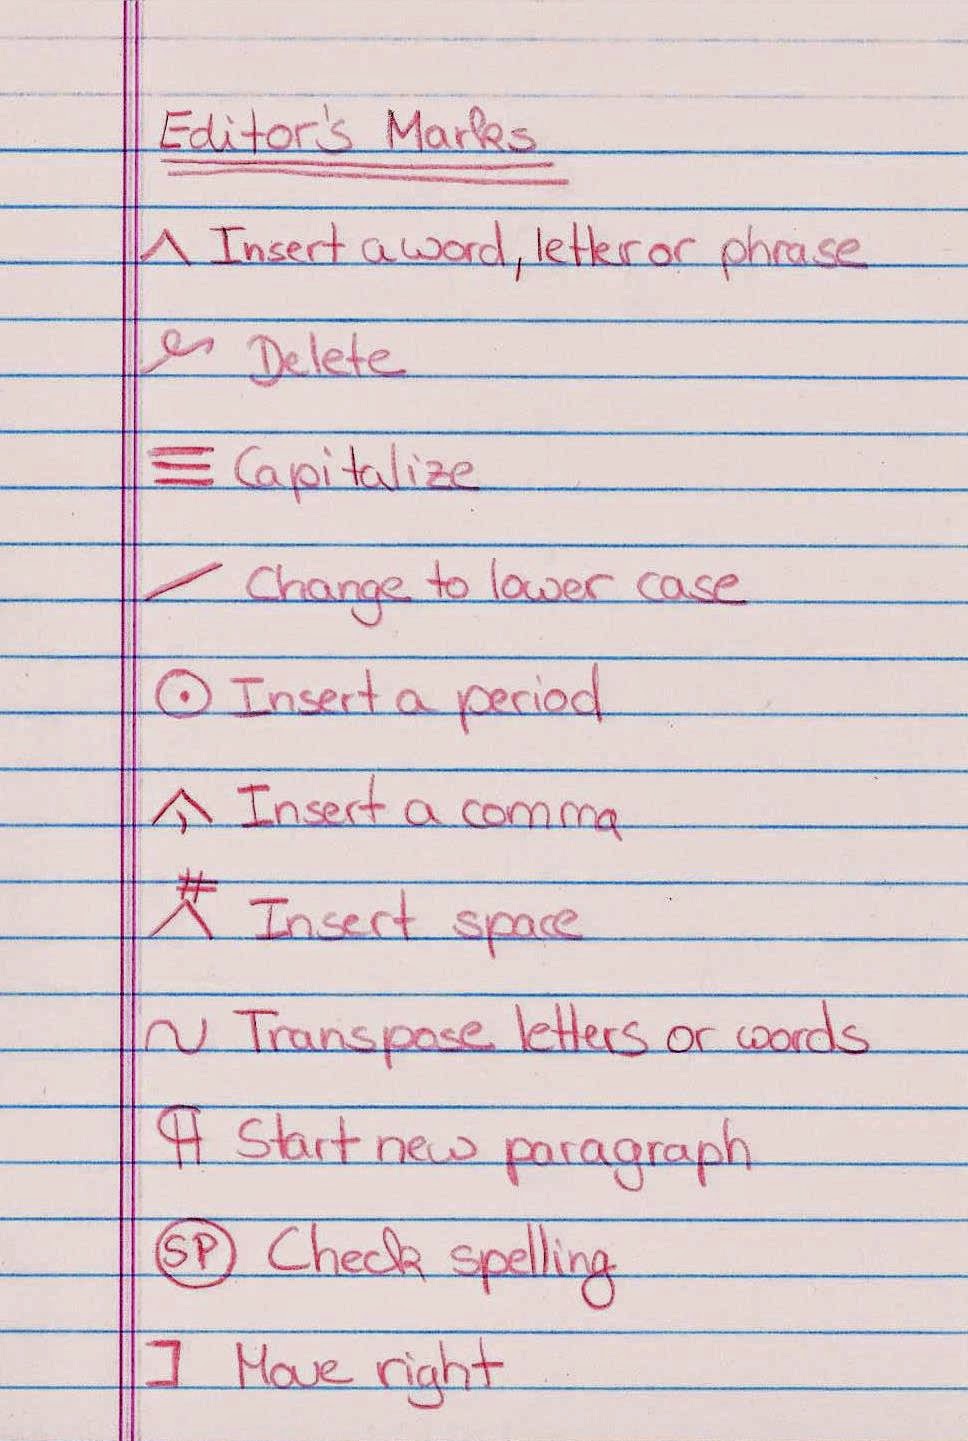 Editor's Marks
^ Insert a word, letter or phrase
Delete
≡ Capitalize
/ Change to lower case
⊙ Insert a period
^, Insert a comma
#^ Insert space
~ Transpose letters or words
¶ Start new paragraph
SP Check spelling
] Move right